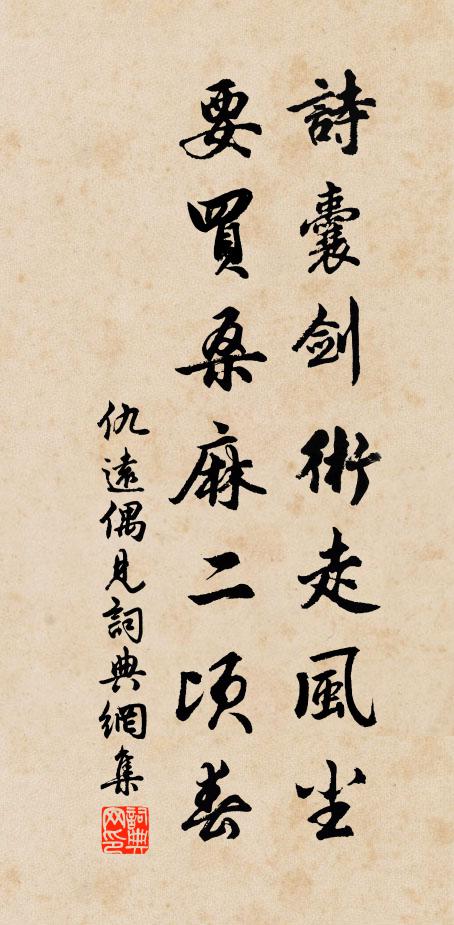 詩囊劍術走風尘
要買桑麻二頃春
仇遠偶見詞典網集
詞典网印